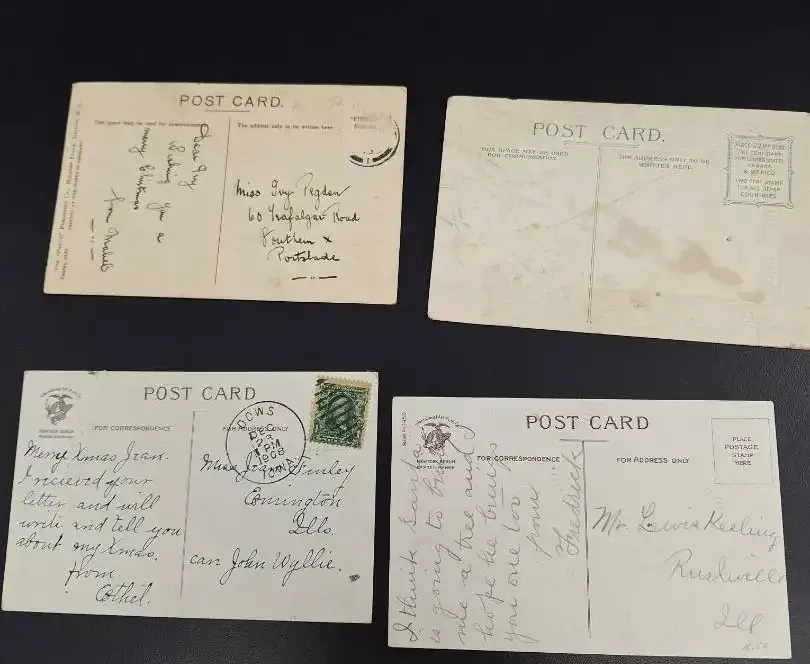 POST CARD.
This space may be used for communication
The address only to be written here
Dear Ivy
Wishing you a
merry Christmas
from Mabel
Miss Ivy Pegden
60 Trafalgar Road
Southern X
Portslade
POST CARD.
THIS SPACE MAY BE USED
FOR COMMUNICATION
THE ADDRESS ONLY TO BE
WRITTEN HERE
PLACE STAMP HERE
ONE CENT STAMP
CANADA
& MEXICO
TWO CENT STAMP
FOR ALL OTHER
COUNTRIES
POST CARD
FOR CORRESPONDENCE
FOR ADDRESS ONLY
DOWS
DEC
23
PM
1908
IOWA
Merry Xmas Jean.
I recieved your
letter and will
write and tell you
about my Xmas.
from
Cethil.
Miss Jean Finley
Emington
Ills.
care John Wyllie.
POST CARD
FOR CORRESPONDENCE
FOR ADDRESS ONLY
PLACE
POSTAGE
STAMP
HERE
I think Santa
is going to bring
me a tree and I
hope he brings
you one too
yours
Fredrick
Mr Lewis Keeling
Rushville
Ill